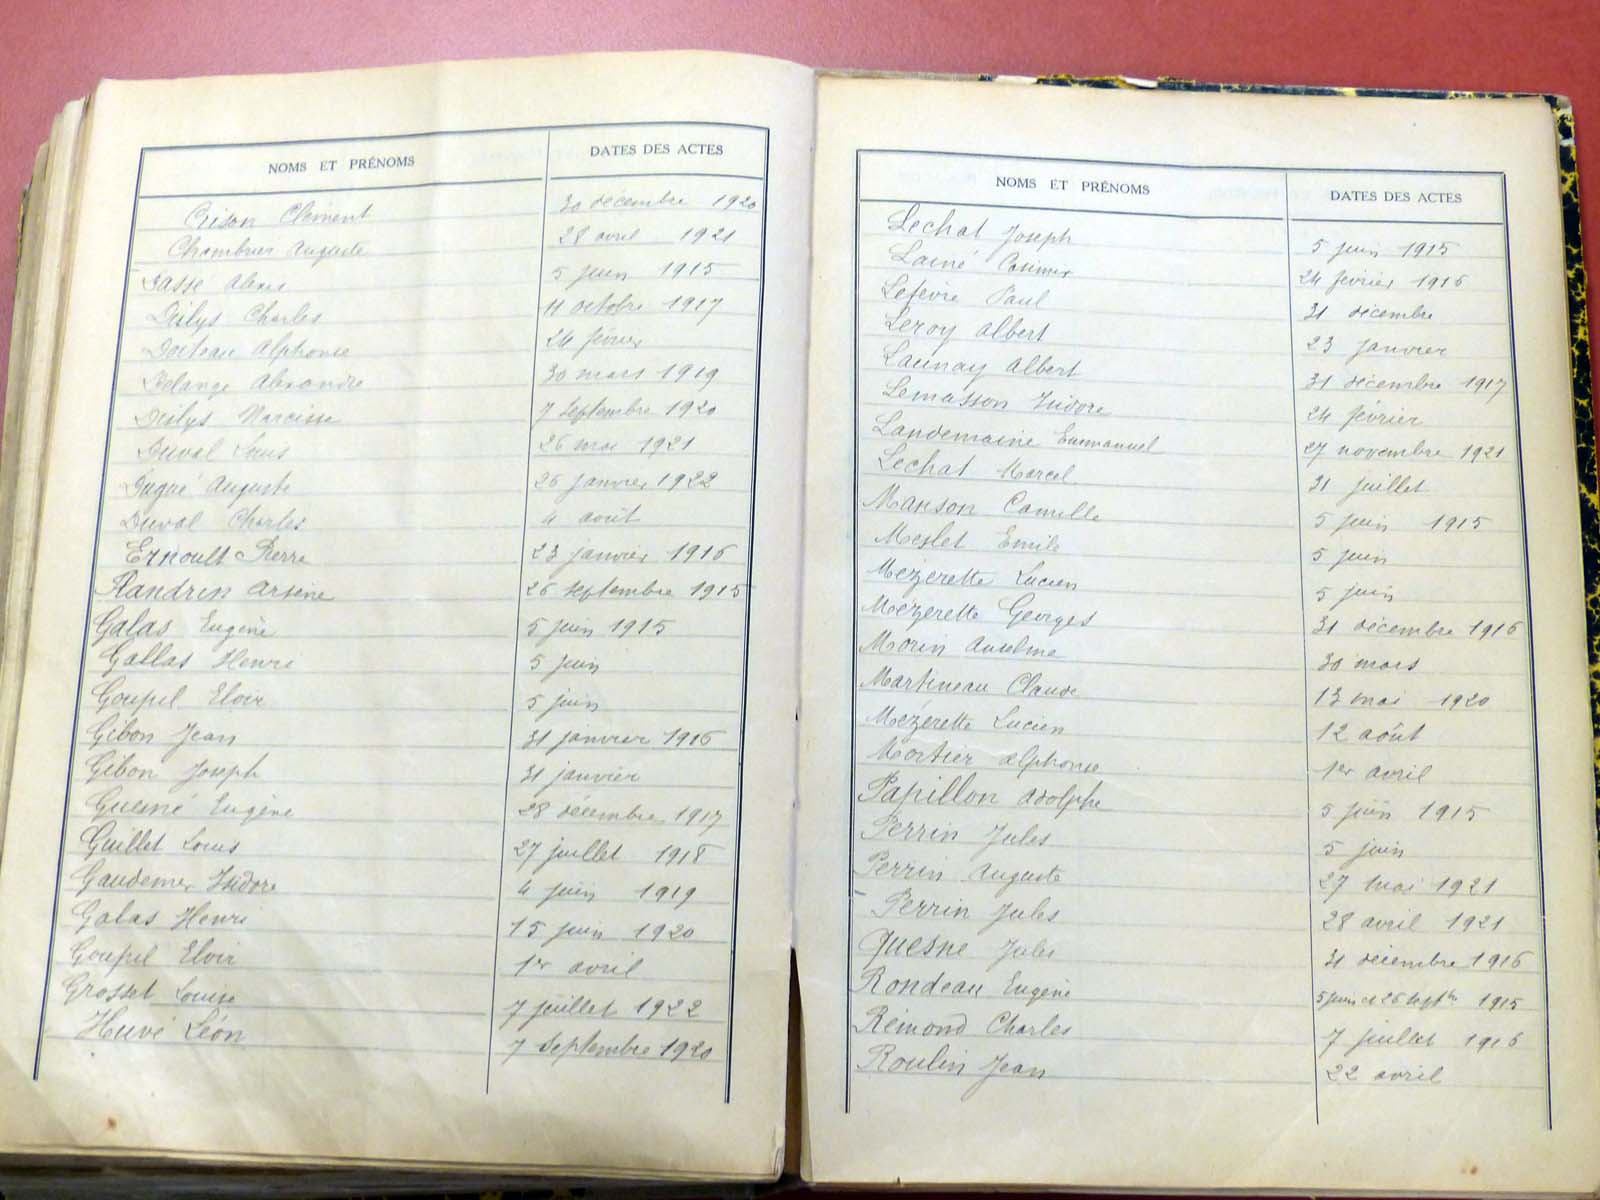 NOMS ET PRÉNOMS DATES DES ACTES
Crison Clément 30 décembre 1920
Chambrier Auguste 28 avril 1921
Dassé Alexis 5 juin 1915
Deslys Charles 11 octobre 1917
Doiteau Alphonse 24 février
Delange Alexandre 30 mars 1919
Deslys Narcisse 7 septembre 1920
Duval Louis 26 mai 1921
Dugué Auguste 26 janvier 1922
Duval Charles 4 août
Ernoult Pierre 23 janvier 1916
Flandrin Arsène 26 septembre 1915
Galas Eugène 5 juin 1915
Gallas Henri 5 juin
Goupil Eloir 5 juin
Gibon Jean 31 janvier 1916
Gibon Joseph 31 janvier
Guesné Eugène 28 décembre 1917
Guillet Louis 27 juillet 1918
Gaudemer Isidore 4 juin 1919
Galas Henri 15 juin 1920
Goupil Eloir 1er avril
Grosset Louise 7 juillet 1922
Huvé Léon 7 septembre 1920
NOMS ET PRÉNOMS DATES DES ACTES
Lechat Joseph 5 juin 1915
Lainé Casimir 24 février 1916
Lefèvre Paul 31 décembre
Leroy Albert 23 janvier
Launay Albert 31 décembre 1917
Lemasson Isidore 24 février
Landemaine Emmanuel 27 novembre 1921
Lechat Marcel 31 juillet
Manson Camille 5 juin 1915
Meslet Emile 5 juin
Mézerette Lucien 5 juin
Mézerette Georges 31 décembre 1916
Morin Anselme 30 mars
Martineau Claude 13 mai 1920
Mézerette Lucien 12 août
Mortier Alphonse 1er avril
Papillon Adolphe 5 juin 1915
Perrin Jules 5 juin
Perrin Auguste 27 mai 1921
Perrin Jules 28 avril 1921
Quesne Jules 31 décembre 1916
Rondeau Eugène 5 juin et 26 septbre 1915
Rémond Charles 7 juillet 1916
Roulin Jean 22 avril